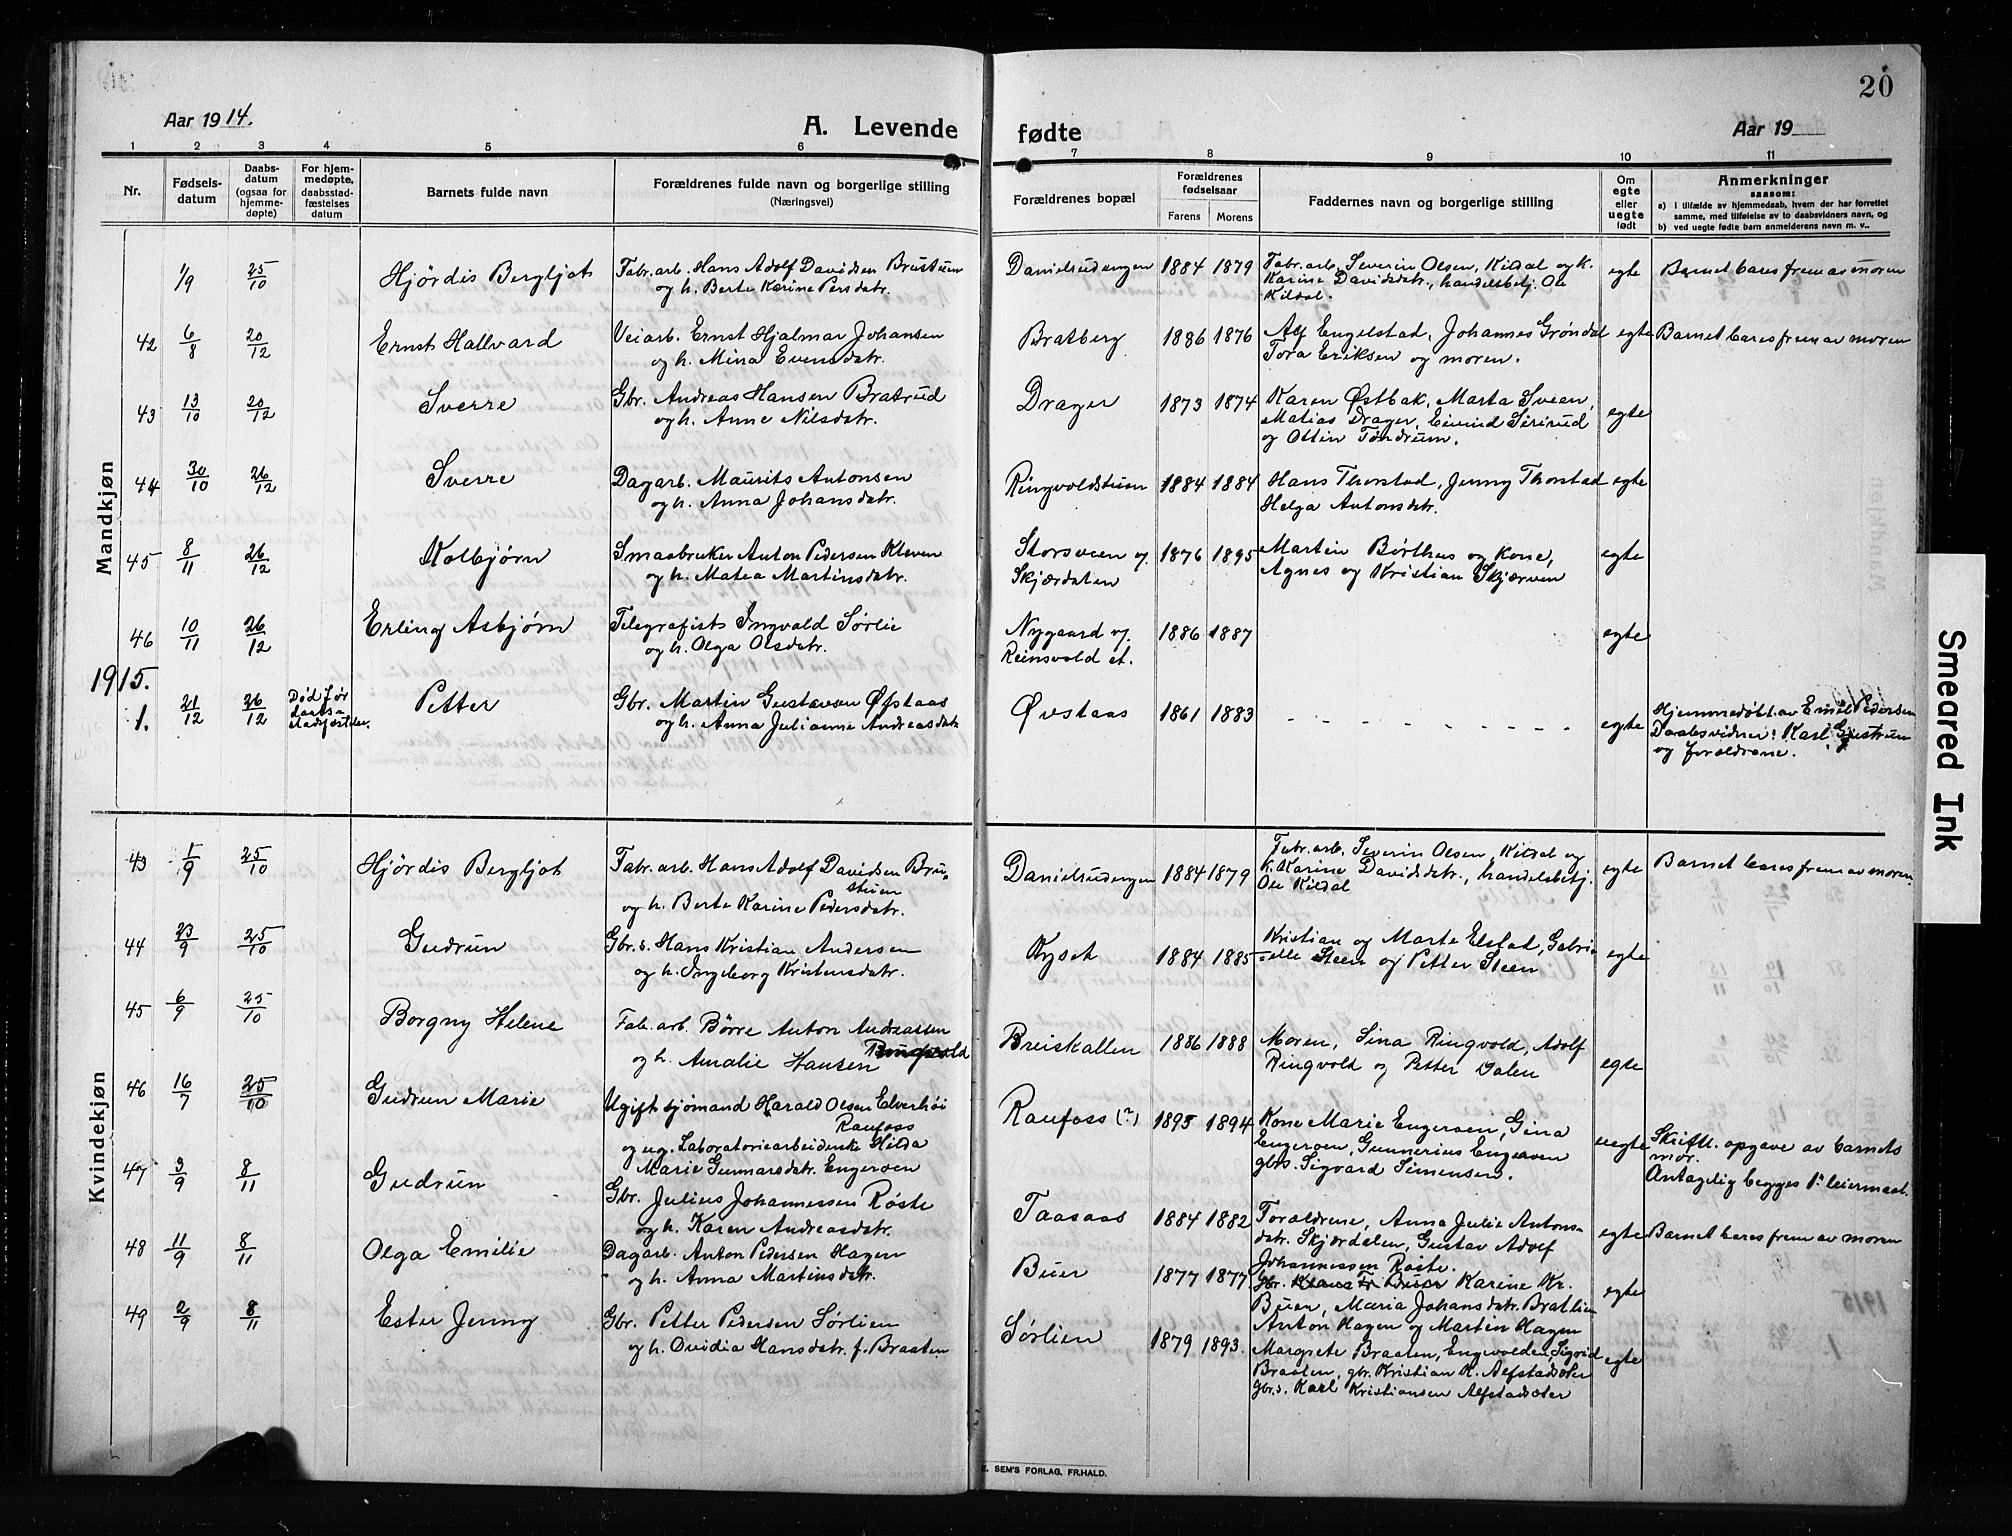 20
Aar 1914.
A. Levende fødte
Aar 19
1 2 3 4 5 6 7 8 9 10 11
Nr.
Fødsels-
datum
Daabs-
datum
(ogsaa for
hjemme-
døpte)
For hjem-
medøpte,
daabsstad-
fæstelses
datum
Barnets fulde navn
Forældrenes fulde navn og borgerlige stilling
(Næringsvei)
Forældrenes bopæl
Forældrenes
fødselsaar
Farens Morens
Faddernes navn og borgerlige stilling
Om
egte
eller
uegte
født
Anmerkninger
saasom:
a) i tilfælde av hjemmedaab, hvem der har forrettet
samme, med tilføielse av to daabsvidners navn, og
b) ved uegte fødte barn anmelderens navn m. v..
Mandkjøn
1/9 25/10 Hjørdis Bergljot
Fabr.arb. Hans Adolf Davidsen Brustuen
og h. Berte Karine Persdatr.
Danielsudengen 1884 1879
Fabr.arb. Severin Olsen, Kildal og k.
Karine Davidsdtr., handelsbetj. Ole
Kildal.
egte
Barnet bares frem av moren
42 6/8 20/12 Ernst Hallvard
Veiarb. Ernst Hjalmar Johansen
og h. Mina Evensdatr.
Bratberg 1886 1876
Alf Engelstad, Johannes Grøndal
Tora Eriksen og moren.
egte
Barnet bares frem av moren
43 13/10 20/12 Sverre
Gbr. Andreas Hansen Bratrud
og h. Anne Nilsdatr.
Drager 1873 1874
Karen Østbak, Marta Sveen,
Matias Drager, Eivind Sirirud
og Ottin Tøndrum.
egte
44 30/10 26/12 Sverre
Dagarb. Maurits Antonsen
og h. Anna Johansdatr.
Ringvoldstuen 1884 1884
Hans Thorstad, Jenny Thorstad
Helga Antonsdtr.
egte
45 8/11 26/12 Kolbjørn
Smaabruker Anton Pedersen Kleven
og h. Matea Martinsdatr.
Storsveen og
Skjærdalen
1876 1895
Martin Børthus og kone,
Agnes og Kristian Skjærven
egte
46 10/11 26/12 Erling Asbjørn
Telegrafist Ingvald Sørlie
og h. Olga Olsdatr.
Nygaard og
Reinsvold st.
1886 1887
egte
1915.
1. 21/12 26/12
Død før
daabs-
stadfæstelse.
Petter
Gbr. Martin Gustavsen Øfstaas
og h. Anna Julianne Andreasdatr
Øvstaas 1861 1883
- - - - - - - - -
egte
Hjemmedøbt av Emil Pedersen
Daabsvidner: Karl Gustrum
og forældrene.
Kvindekjøn
43 1/9 25/10 Hjørdis Bergljot
Fabr.arb. Hans Adolf Davidsen Bru-
stuen
og h. Berte Karine Pedersdatr.
Danielsudengen 1884 1879
Fabr.arb. Severin Olsen, Kildal og
k. Karine Davidsdtr., handelsbetj.
Ole Kildal
egte
Barnet bares frem av moren.
44 23/9 25/10 Gudrun
Gbr.s. Hans Kristian Andersen
og h. Ingeborg Kristensdatr.
Kyset 1884 1885
Kristian og Marte Elstad, Gabri-
elle Steen og Petter Steen
egte
45 6/9 25/10 Borgny Helene
Fab.arb. Børre Anton Andreassen
Ringvold
og h. Amalie Hansen
Breiskallen 1886 1888
Moren, Sina Ringvold, Adolf
Ringvold og Petter Dalen
egte
46 16/7 25/10 Gudrun Marie
Ugift sjømand Harald Olsen Elverhøi
Raufoss
og ug. Laboratoriearbeiderske Hilda
Marie Gunnarsdatr. Engeroen
Raufoss (?) 1895 1894
Kone Marie Engeroen, Gina
Engeroen, Gunnerius Engeroen
gbrs. Sigvard Simensen.
uegte
Skriftl. opgave av barnets
mor.
Antagelig begges 1ste leiermaal.
47 3/9 8/11 Gudrun
Gbr. Julius Johannessen Røste
og h. Karen Andreasdtr.
Taasaas 1884 1882
Forældrene, Anna Julie Antons-
datr. Skjærdalen, Gustav Adolf
Johannessen Røste.
egte
Barnet bares frem av moren
48 11/9 8/11 Olga Emilie
Dagarb. Anton Pedersen Hagen
og h. Anna Martinsdatr.
Buer 1877 1877
Gbr. Klaus Fr. Buer Karine Kr.
Buen, Maria Johansdatr. Bratlien
Anton Hagen og Martin Hagen
egte
49 2/9 8/11 Ester Jenny
Gbr. Petter Pedersen Sørlien
og h. Ovidia Hansdatr. f. Braaten
Sørlien 1879 1893.
Margrete Braaten, Engvolden, Sigrid
Braaten, gbr. Kristian K. Alfstadsæter
Gbr.s. Karl Kristiansen Alfstadsæter
egte
E. SEM'S FORLAG, FR.HALD.
Smeared Ink